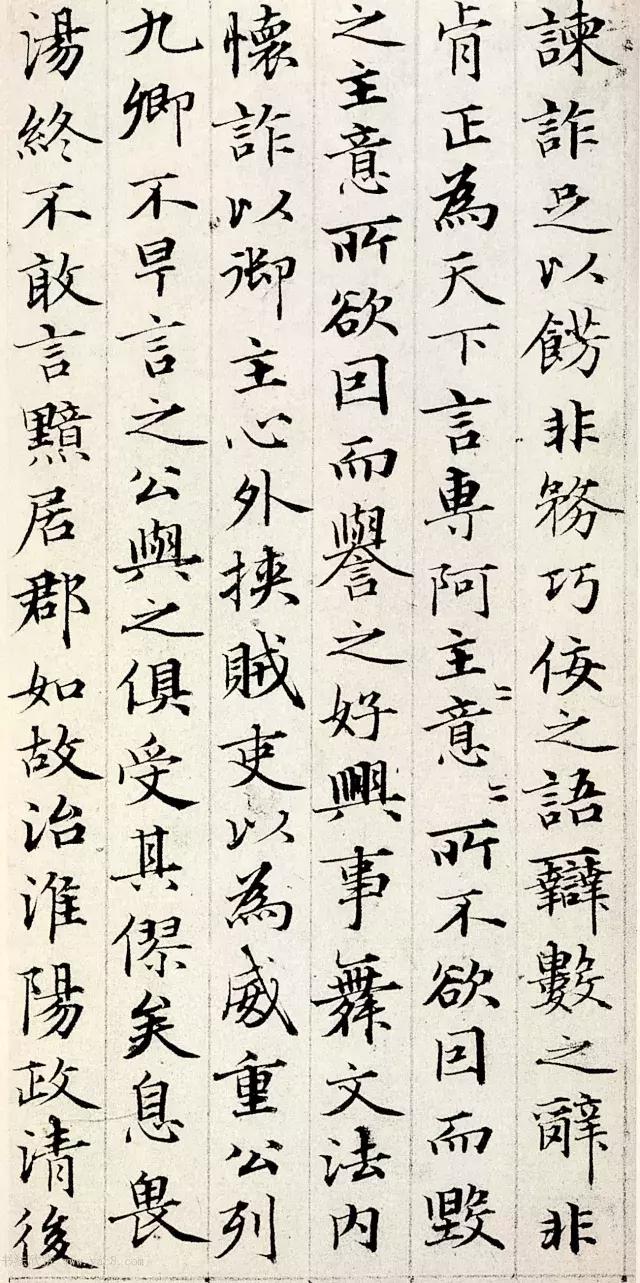 諫詐足以餝非務巧佞之語辯數之辭非
肯正為天下言専阿主〻意〻所不欲因而毀
之主意所欲因而譽之好興事舞文法内
懷詐以御主心外挾賊吏以為威重公列
九卿不早言之公與之俱受其僇矣息畏
湯終不敢言黯居郡如故治淮陽政清後